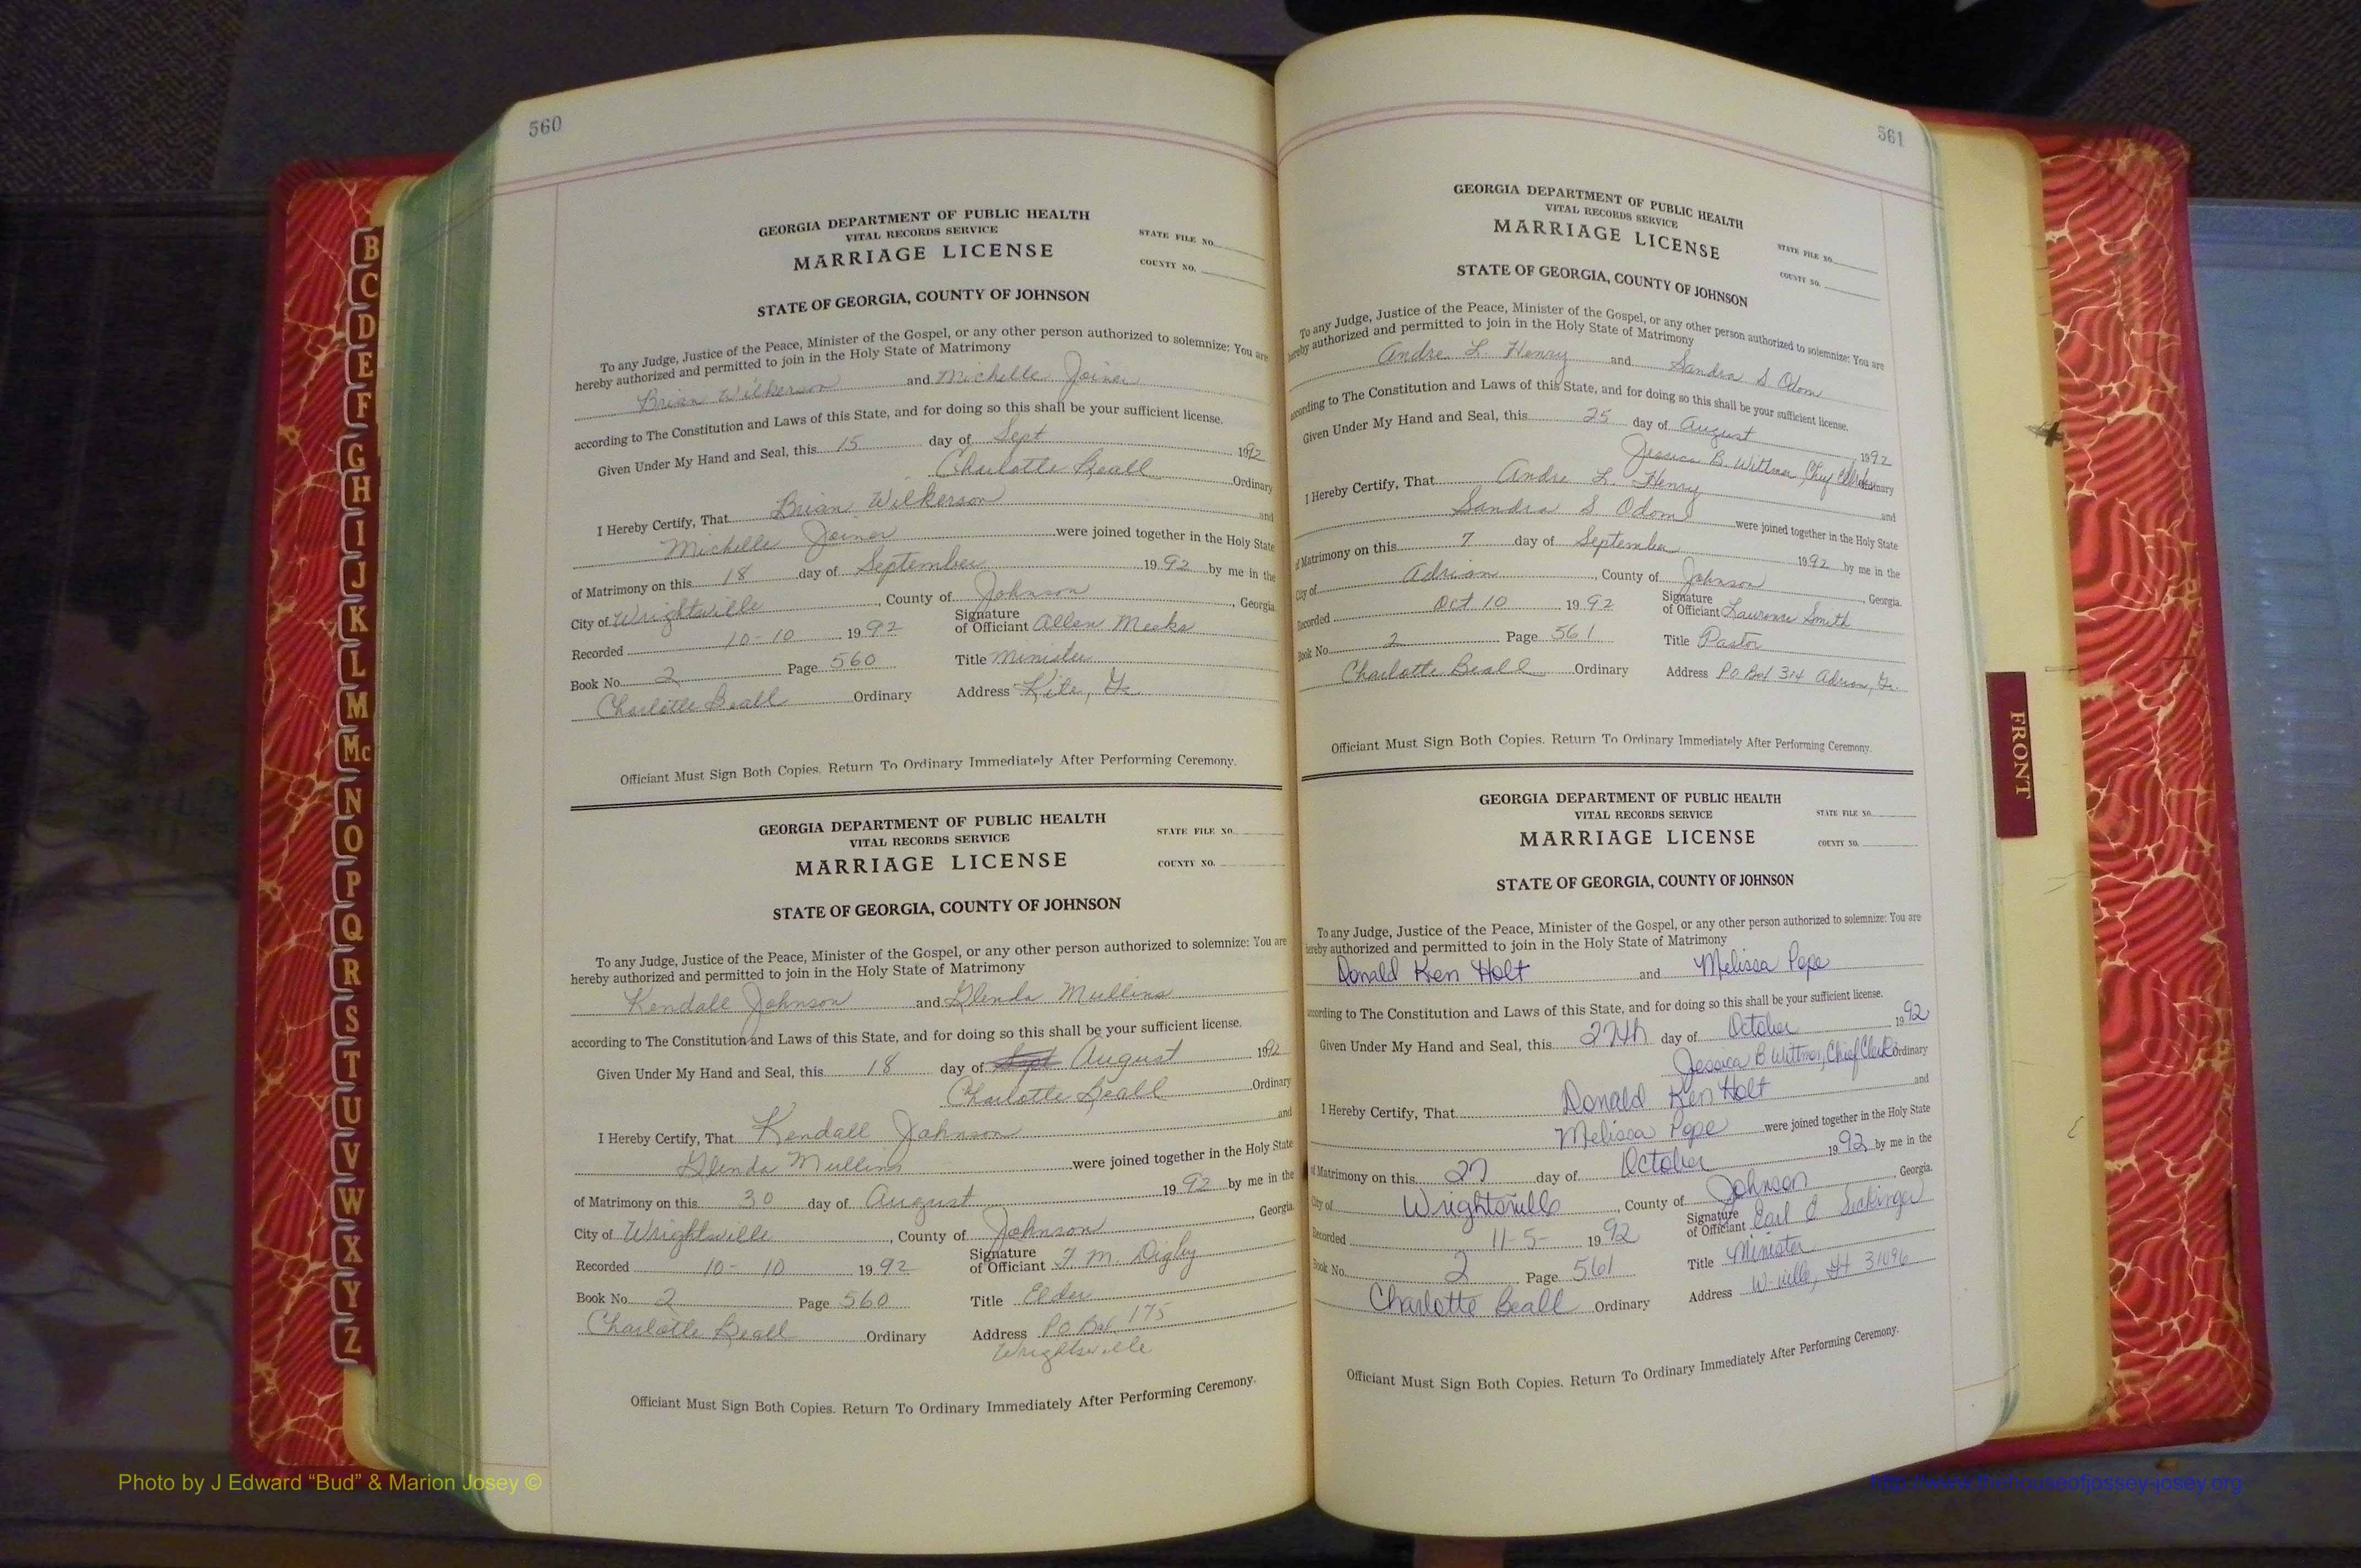 560
GEORGIA DEPARTMENT OF PUBLIC HEALTH
VITAL RECORDS SERVICE
MARRIAGE LICENSE
STATE FILE NO.
COUNTY NO.
STATE OF GEORGIA, COUNTY OF JOHNSON
To any Judge, Justice of the Peace, Minister of the Gospel, or any other person authorized to solemnize: You are
hereby authorized and permitted to join in the Holy State of Matrimony
Brian Wilkerson and Michelle Joiner
according to The Constitution and Laws of this State, and for doing so this shall be your sufficient license.
Given Under My Hand and Seal, this 15 day of Sept 1992
Charlotte Beall Ordinary
I Hereby Certify, That Brian Wilkerson and
Michelle Joiner were joined together in the Holy State
of Matrimony on this 18 day of September 1992 by me in the
City of Wrightsville, County of Johnson, Georgia
Recorded 10-10 1992 Signature of Officiant Allen Meeks
Book No. 2 Page 560 Title Minister
Charlotte Beall Ordinary Address Kite, Ga
Officiant Must Sign Both Copies. Return To Ordinary Immediately After Performing Ceremony.
GEORGIA DEPARTMENT OF PUBLIC HEALTH
VITAL RECORDS SERVICE
MARRIAGE LICENSE
STATE FILE NO.
COUNTY NO.
STATE OF GEORGIA, COUNTY OF JOHNSON
To any Judge, Justice of the Peace, Minister of the Gospel, or any other person authorized to solemnize: You are
hereby authorized and permitted to join in the Holy State of Matrimony
Kendall Johnson and Glenda Mullins
according to The Constitution and Laws of this State, and for doing so this shall be your sufficient license.
Given Under My Hand and Seal, this 18 day of Sept August 1992
Charlotte Beall Ordinary
I Hereby Certify, That Kendall Johnson and
Glenda Mullins were joined together in the Holy State
of Matrimony on this 30 day of August 1992 by me in the
City of Wrightsville, County of Johnson, Georgia
Recorded 10-10 1992 Signature of Officiant T. M. Digby
Book No. 2 Page 560 Title Elder
Charlotte Beall Ordinary Address PO Box 175
Wrightsville
Officiant Must Sign Both Copies. Return To Ordinary Immediately After Performing Ceremony.
561
GEORGIA DEPARTMENT OF PUBLIC HEALTH
VITAL RECORDS SERVICE
MARRIAGE LICENSE
STATE FILE NO.
COUNTY NO.
STATE OF GEORGIA, COUNTY OF JOHNSON
To any Judge, Justice of the Peace, Minister of the Gospel, or any other person authorized to solemnize: You are
hereby authorized and permitted to join in the Holy State of Matrimony
Andre L. Henry and Sandra S Odom
according to The Constitution and Laws of this State, and for doing so this shall be your sufficient license.
Given Under My Hand and Seal, this 25 day of August 1992
Jessica B. Wittmer, Chief Clerk Ordinary
I Hereby Certify, That Andre L. Henry and
Sandra S Odom were joined together in the Holy State
of Matrimony on this 7 day of September 1992 by me in the
City of Adrian, County of Johnson, Georgia.
Recorded Oct 10 1992 Signature of Officiant Lawrence Smith
Book No. 2 Page 561 Title Pastor
Charlotte Beall Ordinary Address PO Box 314 Adrian, Ga.
Officiant Must Sign Both Copies. Return To Ordinary Immediately After Performing Ceremony.
GEORGIA DEPARTMENT OF PUBLIC HEALTH
VITAL RECORDS SERVICE
MARRIAGE LICENSE
STATE FILE NO.
COUNTY NO.
STATE OF GEORGIA, COUNTY OF JOHNSON
To any Judge, Justice of the Peace, Minister of the Gospel, or any other person authorized to solemnize: You are
hereby authorized and permitted to join in the Holy State of Matrimony
Donald Ken Holt and Melissa Pope
according to The Constitution and Laws of this State, and for doing so this shall be your sufficient license.
Given Under My Hand and Seal, this 27th day of October 1992
Jessica B Wittmer, Chief Clerk Ordinary
I Hereby Certify, That Donald Ken Holt and
Melissa Pope were joined together in the Holy State
of Matrimony on this 27 day of October 1992 by me in the
City of Wrightsville, County of Johnson Georgia.
Recorded 11-5- 1992 Signature of Officiant Earl Seckinger
Book No. 2 Page 561 Title Minister
Charlotte Beall Ordinary Address W-ville, GA 31096
Officiant Must Sign Both Copies. Return To Ordinary Immediately After Performing Ceremony.
B
C
D
E
F
G
H
I
J
K
L
M
Mc
N
O
P
Q
R
S
T
U
V
W
X
Y
Z
FRONT
Photo by J Edward “Bud” & Marion Josey ©
http://www.thehouseofjossey-josey.org